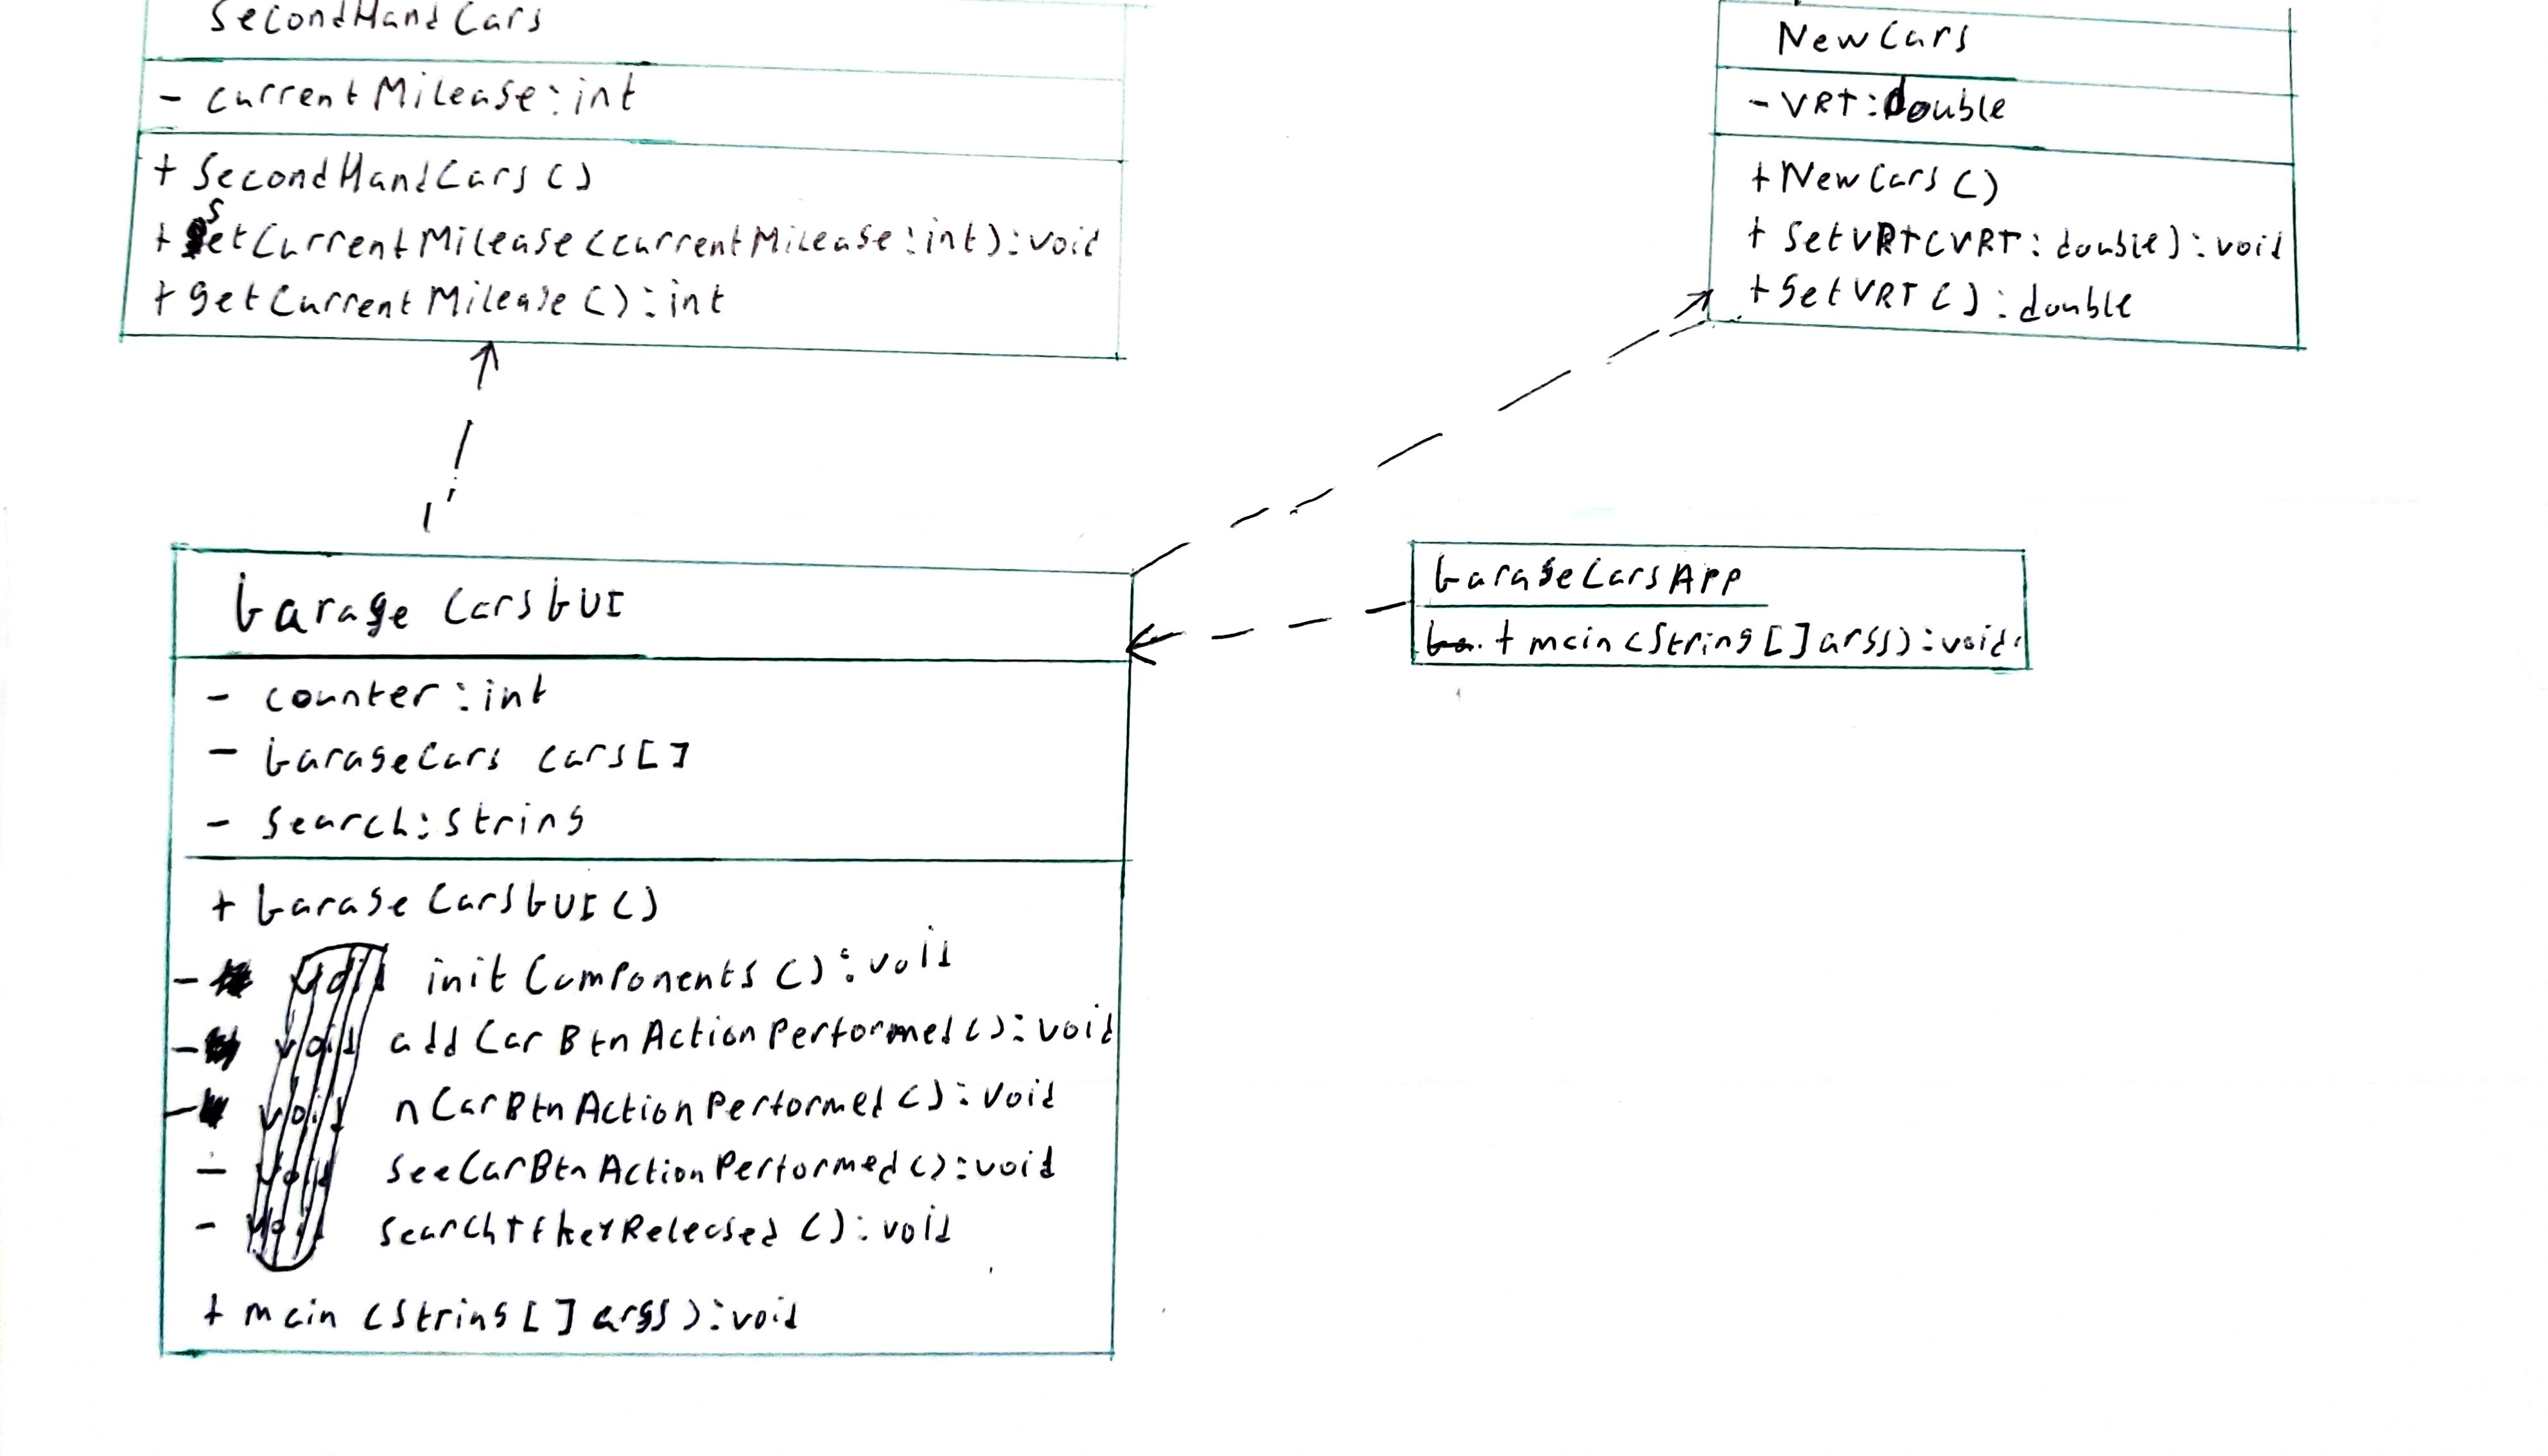 SecondHandCars
- currentMileage: int
+ SecondHandCars()
+ setCurrentMileage(currentMileage: int): void
+ getCurrentMileage(): int
NewCars
- VRT: double
+ NewCars()
+ setVRT(VRT: double): void
+ getVRT(): double
GarageCarsGUI
- counter: int
- GarageCars cars[]
- search: string
+ GarageCarsGUI()
- initComponents(): void
- addCarBtnActionPerformed(): void
- nCarBtnActionPerformed(): void
- seeCarBtnActionPerformed(): void
- searchTfKeyReleased(): void
+ main(String[] args): void
GarageCarsApp
+ main(String[] args): void